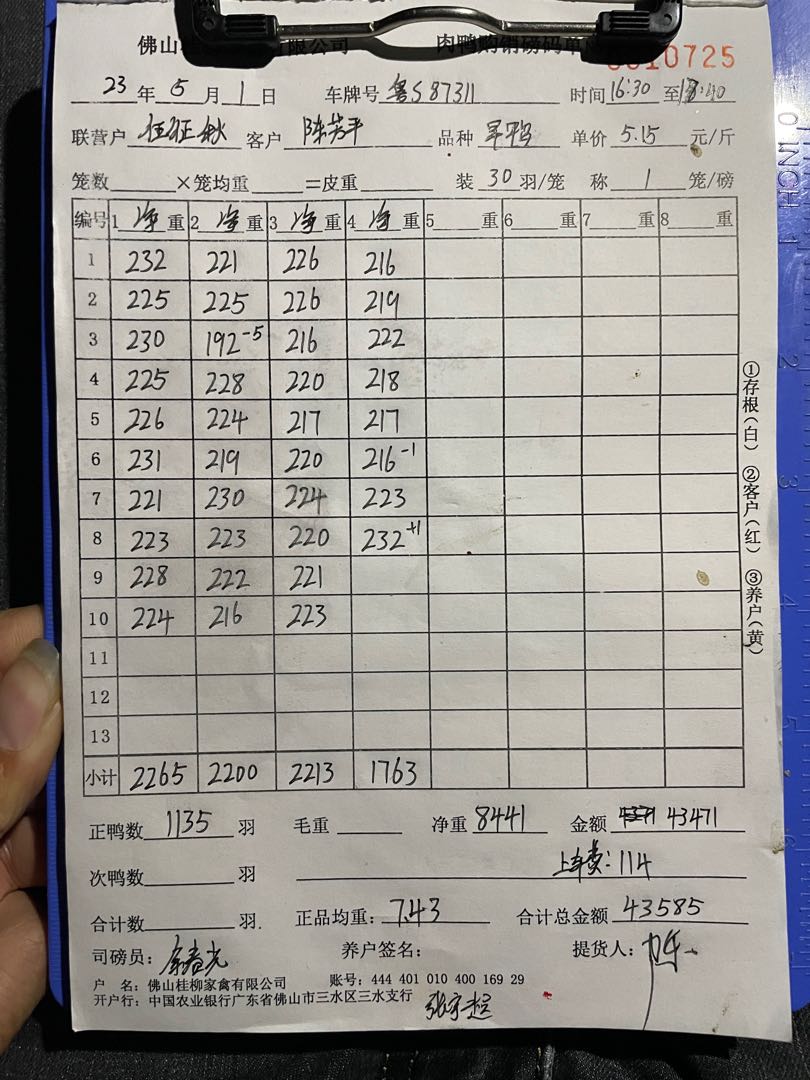 佛山 有限公司 肉鸭购销磅码单 0010725
23年5月1日 车牌号 粤S87311 时间16:30至18:40
联营户 伍征秋 客户 陈芳平 品种 旱鸭 单价 5.15 元/斤
笼数 ×笼均重 =皮重 装 30 羽/笼 称 1 笼/磅
编号 1 净 重 2 净 重 3 净 重 4 净 重 5 重 6 重 7 重 8 重
1 232 221 226 216
2 225 225 226 219
3 230 192-5 216 222
4 225 228 220 218
5 226 224 217 217
6 231 219 220 216-1
7 221 230 224 223
8 223 223 220 232+1
9 228 222 221
10 224 216 223
11
12
13
小计 2265 2200 2213 1763
①存根(白) ②客户(红) ③养户(黄)
正鸭数 1135 羽 毛重 净重 8441 金额 43471
次鸭数 羽 上车费:114
合计数 羽. 正品均重: 7.43 合计总金额 43585
司磅员: 余春光 养户签名: 提货人:
户 名: 佛山桂柳家禽有限公司 账号: 444 401 010 400 169 29
开户行: 中国农业银行广东省佛山市三水区三水支行
0 INCH 1 2 3 4 5